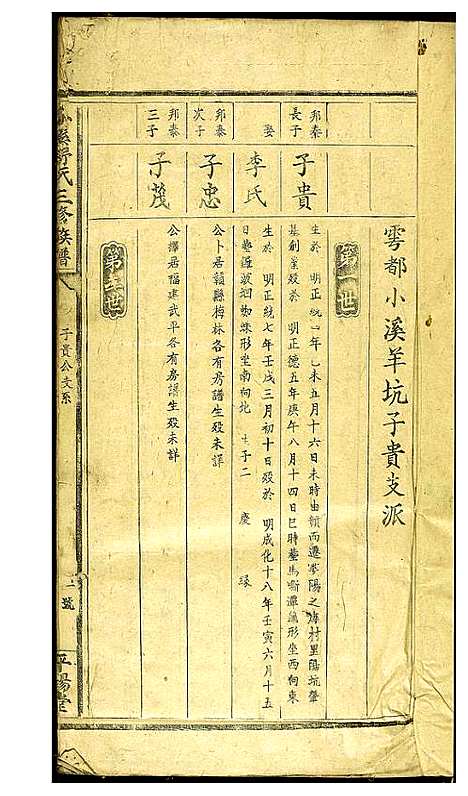 雩都小溪羊坑子貴支派
第一世
邦泰長子
子貴
生於 明正統 年乙未五月十六日未時由贛而遷雩陽之 村里陽坑肇
基創業殁於 明正德五年庚午八月十四日巳時葬馬嘶潭 形坐西向東
娶
李氏
生於 明正統七年壬戌三月初十日殁於 明成化十八年壬寅六月十五
日 蜘蛛形坐南向北 生子二 慶 緣
邦泰次子
子忠
公卜居贛縣梅林各有房譜生殁未詳
邦泰三子
子茂
公擇居福建武平各有房譜生殁未詳
第二世
小溪 氏三修族譜
子貴公支系
號
平陽堂